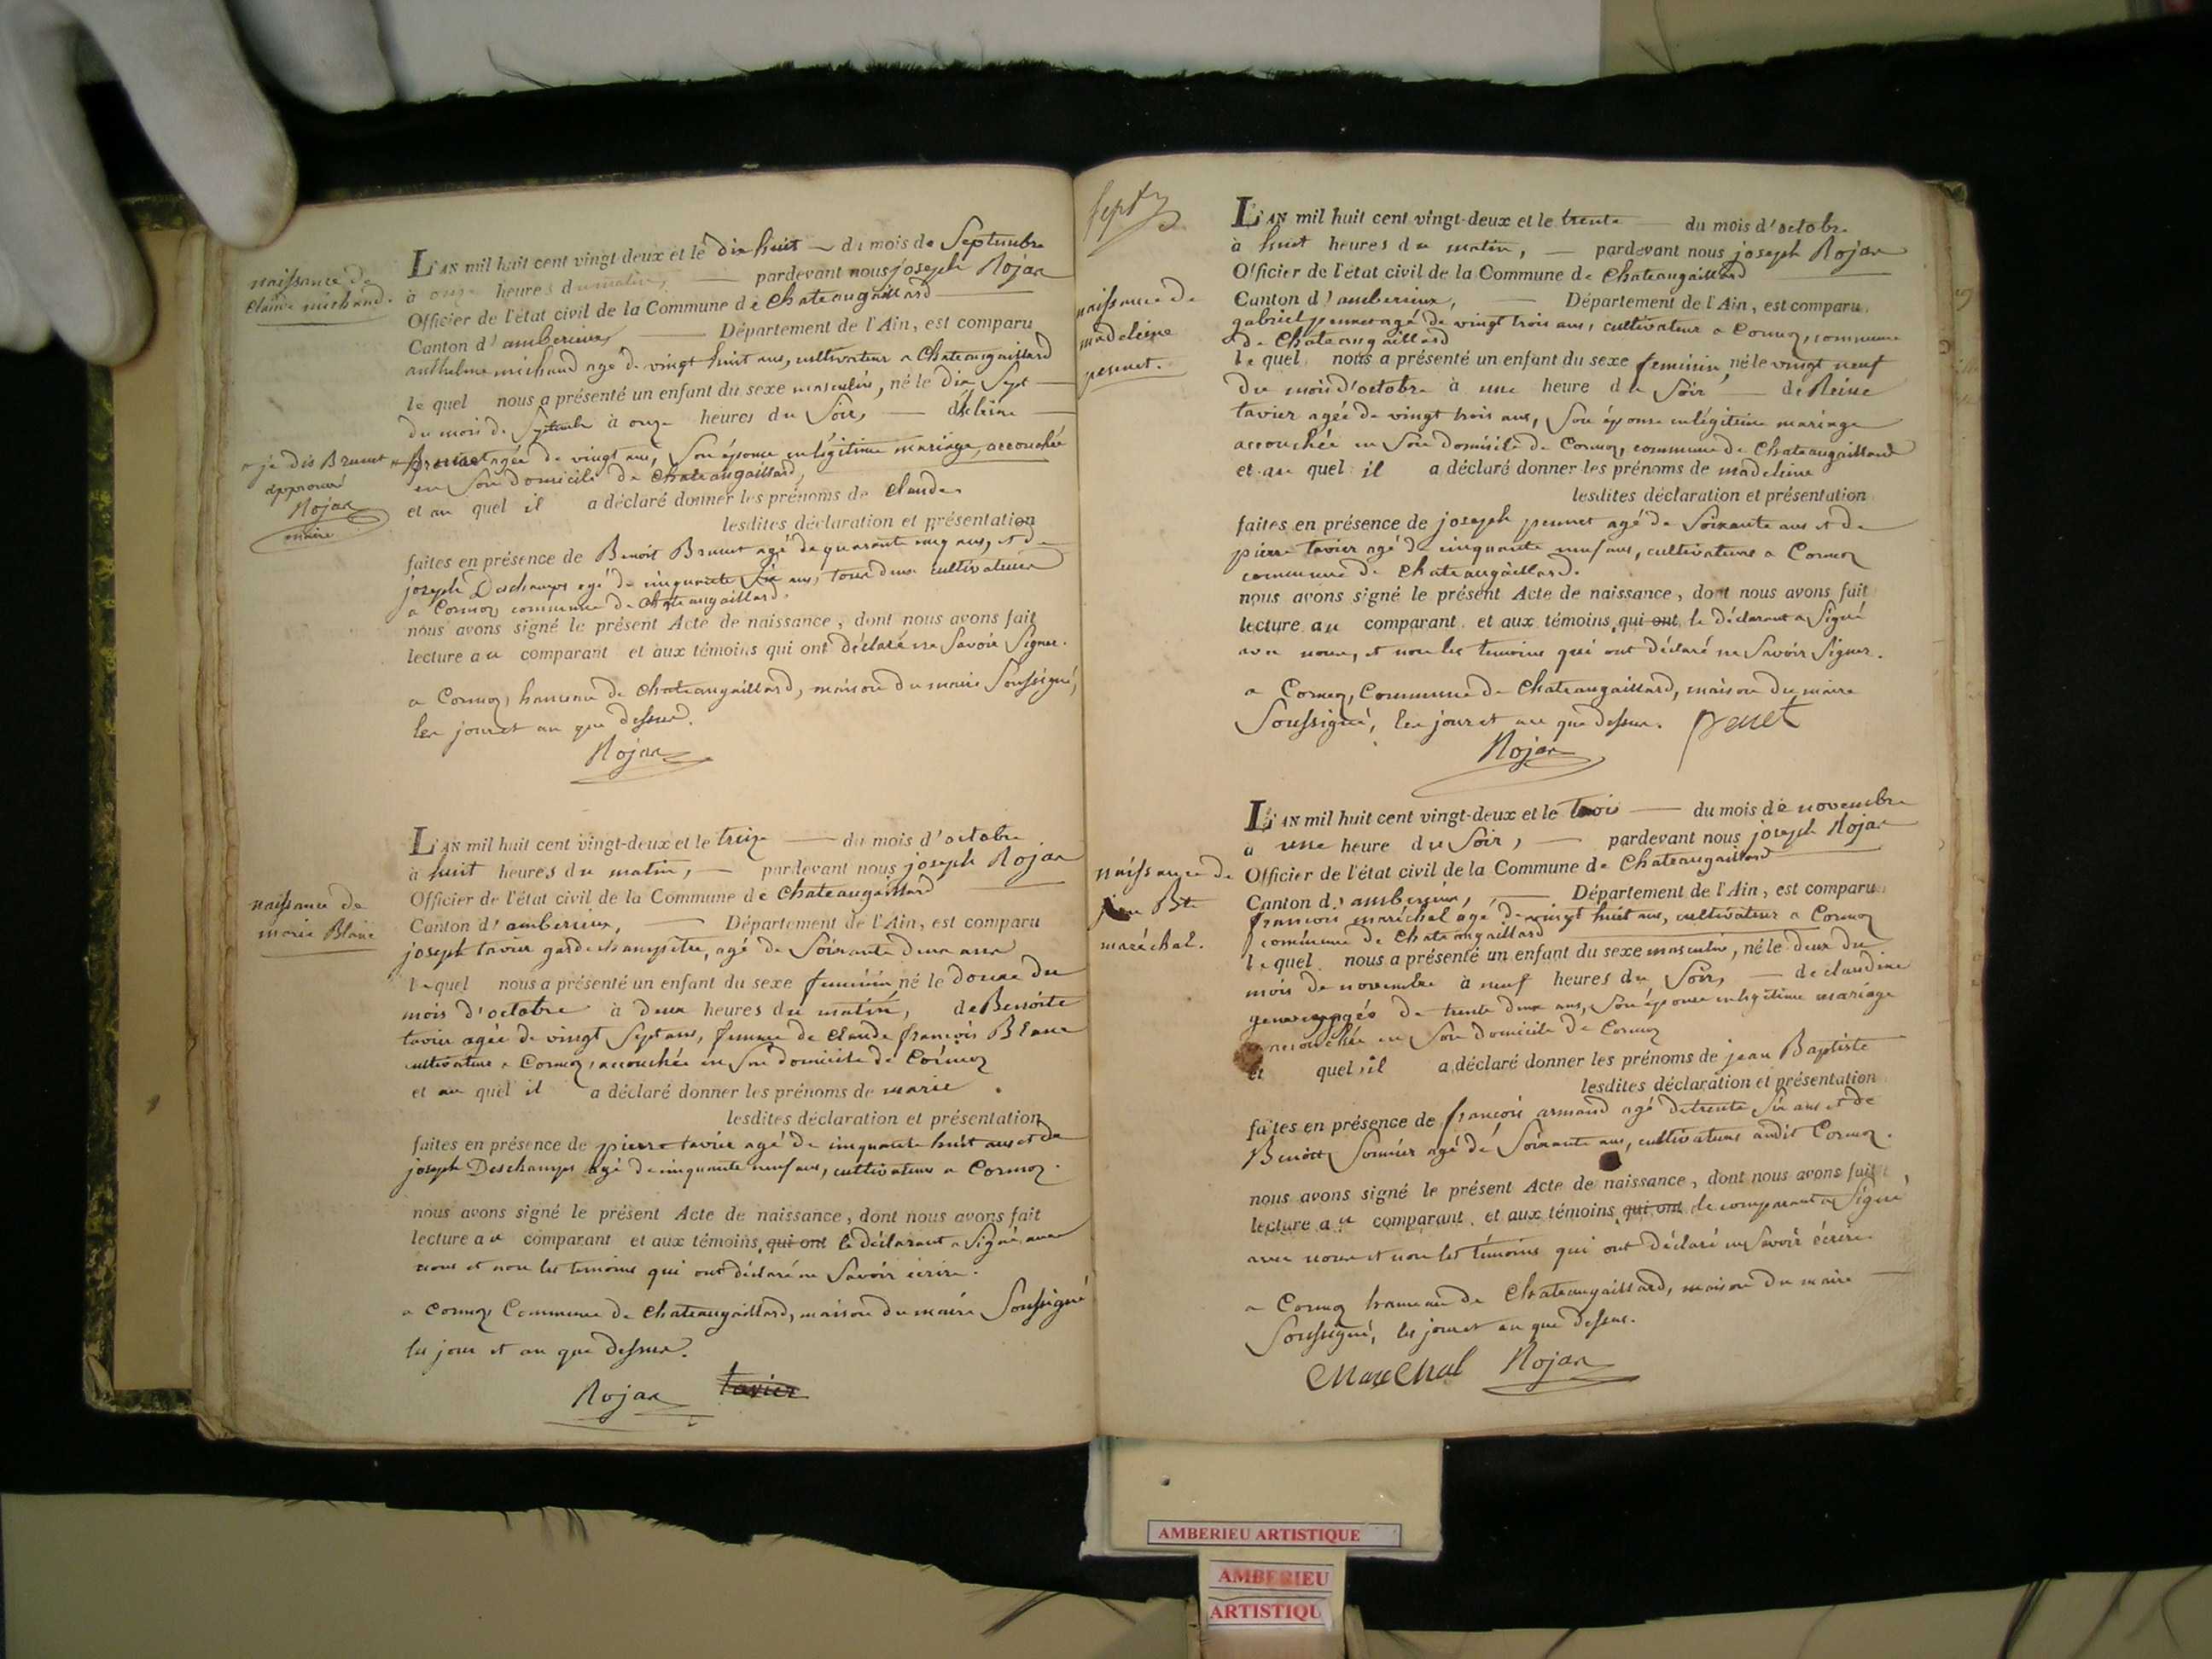 naissance de
Claude michaud.
L'AN mil huit cent vingt-deux et le dix huit — du mois de Septembre
à onze heures du matin, — pardevant nous joseph Rojat
Officier de l'état civil de la Commune de Chateaugaillard
Canton d'amberieux — Département de l'Ain, est comparu
anthelme michaud agé de vingt huit ans, cultivateur a Chateaugaillard
le quel nous a présenté un enfant du sexe masculin, né le dix Sept —
du mois de Septembre à onze heures du Soir, —
agée de vingt ans, Son épouse en légitime mariage, accouchée
en Son domicile de Chateaugaillard,
et au quel il a déclaré donner les prénoms de Claude
lesdites déclaration et présentation
faites en présence de Benoit Brunet agé de quarante cinq ans, et de
joseph Deschamps agé de cinquante Six ans, tous deux cultivateurs
a Cormoz, commune de Chateaugaillard.
nous avons signé le présent Acte de naissance, dont nous avons fait
lecture au comparant et aux témoins qui ont déclaré ne Savoir Signer.
a Cormoz, hameau de Chateaugaillard, maison du maire Soussigné,
les jour et an que dessus.
Rojat
je dis Brunet
approuvé
Rojat
maire
naissance de
marie Blanc
L'AN mil huit cent vingt-deux et le treize — du mois d'octobre
à huit heures du matin, — pardevant nous joseph Rojat
Officier de l'état civil de la Commune de Chateaugaillard
Canton d'amberieux, — Département de l'Ain, est comparu
joseph tavier garde champêtre, agé de Soixante deux ans
le quel nous a présenté un enfant du sexe feminin né le douze du
mois d'octobre à deux heures du matin, de Benoite
tavier agée de vingt Sept ans, femme de claude françois Blanc
cultivateur a Cormoz, accouchée en Son domicile de Cormoz
et au quel il a déclaré donner les prénoms de marie.
lesdites déclaration et présentation
faites en présence de pierre tavier agé de cinquante huit ans et de
joseph Deschamps agé de cinquante neuf ans, cultivateurs a Cormoz.
nous avons signé le présent Acte de naissance, dont nous avons fait
lecture au comparant et aux témoins, qui ont le déclarant a Signé avec
nous et non les temoins qui ont déclaré ne Savoir écrire.
a Cormoz Commune de Chateaugaillard, maison du maire Soussigné
les jour et an que dessus.
Rojat tavier
naissance de
madeleine
pennet.
L'AN mil huit cent vingt-deux et le trente — du mois d'octobre
à huit heures du matin, — pardevant nous joseph Rojat
Officier de l'état civil de la Commune de Chateaugaillard
Canton d'amberieux, — Département de l'Ain, est comparu
gabriel pennet agé de vingt trois ans, cultivateur a Cormoz, commune
de Chateaugaillard
le quel nous a présenté un enfant du sexe feminin, né le vingt neuf
du mois d'octobre à une heure du Soir — de Reine
tavier agée de vingt trois ans, Son épouse en légitime mariage
accouchée en Son domicile de Cormoz, commune de Chateaugaillard
et au quel il a déclaré donner les prénoms de madeleine
lesdites déclaration et présentation
faites en présence de joseph pennet agé de Soixante ans et de
pierre tavier agé de cinquante neuf ans, cultivateurs a Cormoz
commune de Chateaugaillard.
nous avons signé le présent Acte de naissance, dont nous avons fait
lecture au comparant et aux témoins, qui ont le déclarant a Signé
avec nous, et non les temoins qui ont déclaré ne Savoir Signer.
a Cormoz, Commune de Chateaugaillard, maison du maire
Soussigné, les jour et an que dessus.
Rojat
naissance de
jean Bte
maréchal.
L'AN mil huit cent vingt-deux et le trois — du mois de novembre
à une heure du Soir, — pardevant nous joseph Rojat
Officier de l'état civil de la Commune de Chateaugaillard
Canton d'amberieux, — Département de l'Ain, est comparu
françois maréchal agé de vingt huit ans, cultivateur a Cormoz
commune de Chateaugaillard
le quel nous a présenté un enfant du sexe masculin, né le deux du
mois de novembre à neuf heures du Soir, — de claudine
de trente deux ans, Son épouse en légitime mariage
accouchée en Son domicile de Cormoz
et quel il a déclaré donner les prénoms de jean Baptiste
lesdites déclaration et présentation
faites en présence de françois armand agé de trente Six ans et de
Benoit Sornier agé de Soixante ans, cultivateurs audit Cormoz.
nous avons signé le présent Acte de naissance, dont nous avons fait
lecture au comparant et aux témoins, qui ont le comparant a Signé
avec nous et non les témoins qui ont déclaré ne Savoir écrire
a Cormoz hameau de Chateaugaillard, maison du maire —
Soussigné, les jour et an que dessus.
MareChal Rojat
AMBERIEU ARTISTIQUE
AMBERIEU
ARTISTIQU